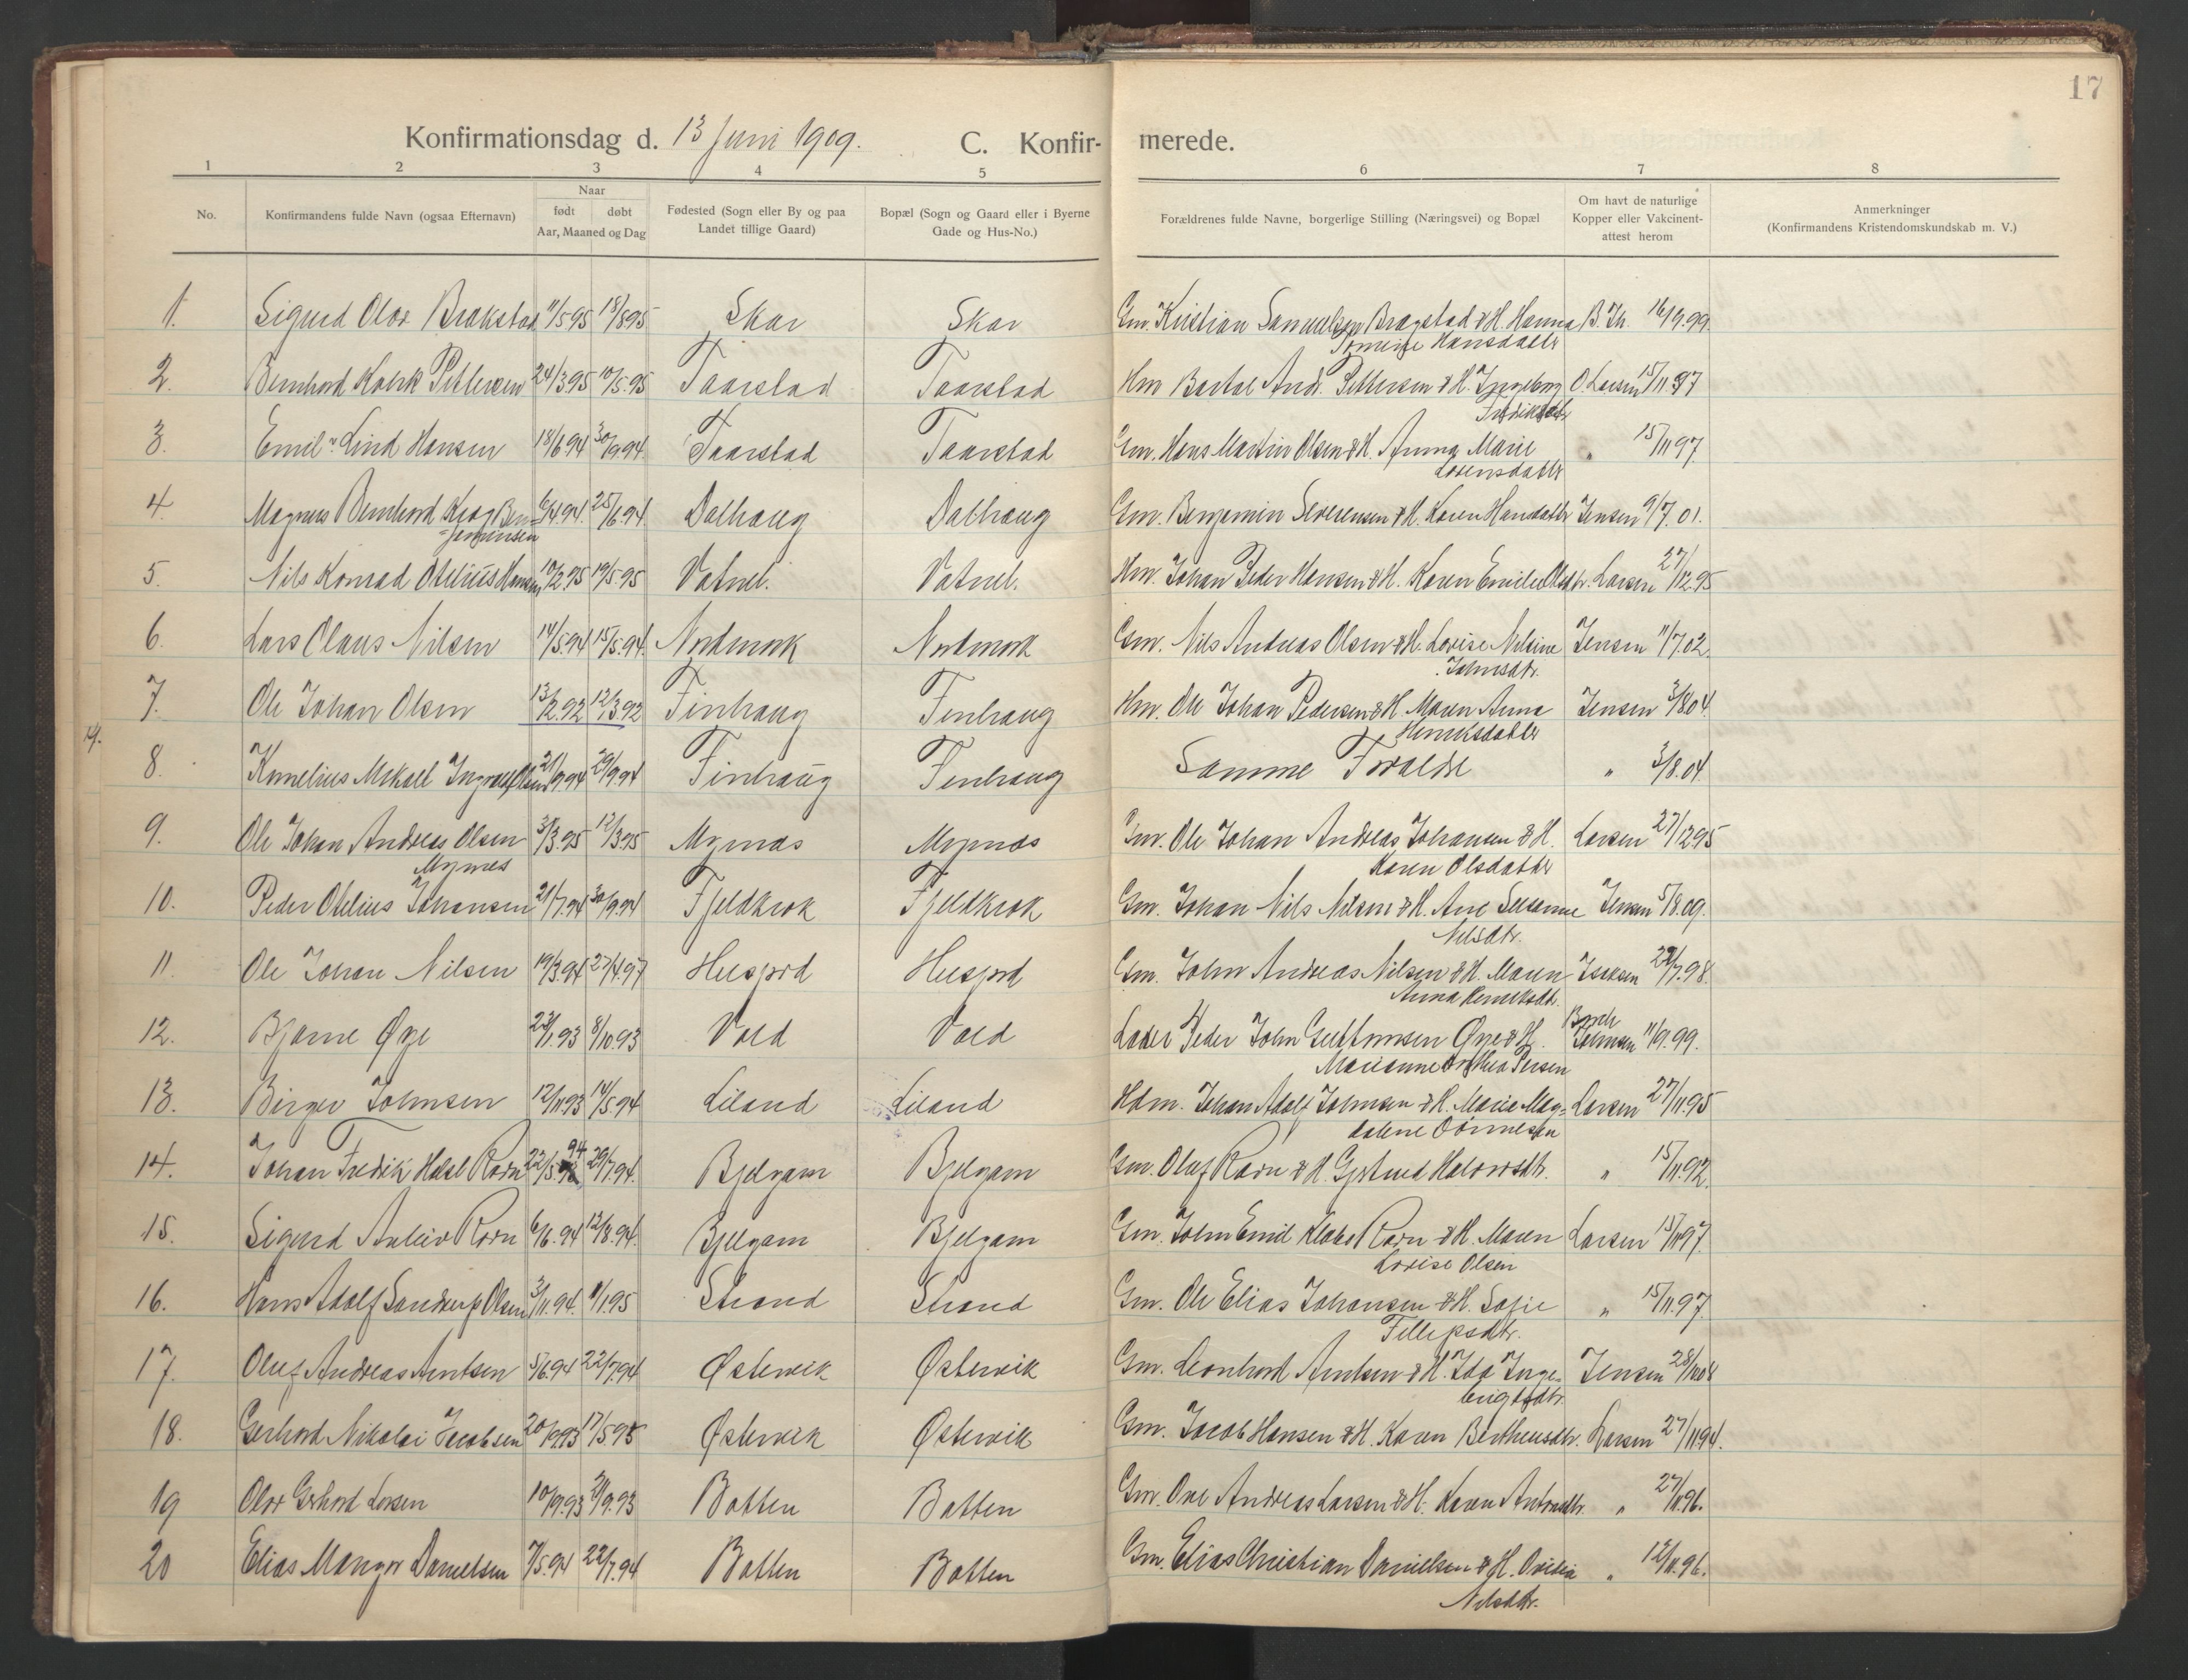 17
Konfirmationsdag d. 13 Juni 1909. C. Konfir- merede.
1 2 3 4 5 6 7 8
No.
Konfirmandens fulde Navn (ogsaa Efternavn)
Naar
født døbt
Aar, Maaned og Dag
Fødested (Sogn eller By og paa
Landet tillige Gaard)
Bopæl (Sogn og Gaard eller i Byerne
Gade og Hus-No.)
Forældrenes fulde Navne, borgerlige Stilling (Næringsvei) og Bopæl
Om havt de naturlige
Kopper eller Vakcinent-
attest herom
Anmerkninger
(Konfirmandens Kristendomskundskab m. V.)
1. Sigurd Olav Brakstad 11/5 95 18/8 95 Skar Skar Gm. Kristian Samuelsen Bragstad & H. Hanna B. Th. 16/9.99.
Hansdatter
2. Bernhard Pettersen 24/3 95 10/5.95 Taarstad Taarstad Hm Bartol Andr. Pettersen & H. Ingeborg O. Larsen 15/11 97
Fredriksdtr
3. Emil Lind Hansen 18/6 94 30/9 94. Taarstad Taarstad Gm. Hans Martin Olsen & H. Anna Marie " 15/11 97
Lorensdatter
4. Magnus Bernhard Krag Ben= 6/4 94. 25/6 94. Dalhaug Dalhaug Gm. Benjamin Severensen & H. Karen Hansdatter Jensen 9/7.01.
=jaminsen
5. Nils Konrad Otelius Hansen 17/2.95 19/5.95 Votnel. Votnel. Hm. Johan Peder Hansen & H. Karen Emilie Olsdtr. Larsen 27/12.95
6. Lars Olaus Nilsen 14/5.94 15/5.94. Nordmark Nordmark Gm. Nils Andreas Olsen & H. Lovise Nilsine Jensen 11/7.02.
Johnsdtr.
7. Ole Johan Olsen 13/2.92 12/3.92 Finhaug Finhaug Hm. Ole Johan Pedersen & H. Maren Anna Jensen 3/8 04.
Henriksdatter
19.
8. Kornelius Mikael Ingvald Olsen 21/9.94 29/9.94 Finhaug Finhaug Samme Foraldre " 3/8.04
9. Ole Johan Andreas Olsen 3/3.95 12/3.95 Mynas Mynas Gm. Ole Johan Andreas Johansen & H. Larsen 27/12 95
Mynes Karen Olsdatter
10. Peder Otelius Johansen 21/7.94 30/9.94 Fjeldkrok Fjeldkrok Gm. Johan Nils Nilsen & H. Ane Susanne Jensen 5/8.09.
Nilsdtr.
11. Ole Johan Nilsen 19/3.94 27/4.97 Husjord Husjord Gm. John Andreas Nilsen & H. Maren Isaksen 29/7.98.
Anna Henriksdtr.
12. Bjarne Øye 23/1.93 8/10.93 Vold Vold Peder John Guttormsen Øye & H. Borch Johnsen 11/9.99.
Marianne Persen
13. Birger Johnsen 12/11 93 14/5.94 Liland Liland Hdm. Johan Adolf Johnsen & H. Marie Mag= Larsen 27/11.95
dalene
14. Johan Fredrik Ravn 22/5 94 29/7.94. Bjelgam Bjelgam Gm. Oluf Ravn & H. Gjertrud Halvorsdtr. " 15/11.92.
15. Sigurd Anleiv Ravn 6/6.94 12/8.94. Bjelgam Bjelgam Gm. John Emil Ravn & H. Maren Larsen 15/11 97.
Lovise Olsen
16. Hans Adolf Sandrup Olsen 3/11.94. 1/1.95 Strand Strand Gm. Ole Elias Johansen & H. Sofie " 15/11.97
Fillipsdtr.
17. Oluf Andreas Arntsen 5/6.94 22/7.94 Østervik Østervik Gm. Leonhard Arntsen & H. Ida Inge= Jensen
brigtsdtr.
18. Gerhard Nikolai Jacobsen 20/9.93 17/5.95 Østervik Østervik Gm. Jacob Hansen & H. Karen Bertheusdtr. Larsen 27/11.94.
19 Olav Gerhard Larsen 10/9.93 31/9.93 Botten Botten Gm. Ove Andreas Larsen & H. Karen Antonsdtr. " 27/11.96.
20 Elias Mangor Danielsen 7/5.94 22/7.94 Botten Botten Gm. Elias Christian Danielsen & H. Ovidia " 12/11.96.
Nilsdtr.